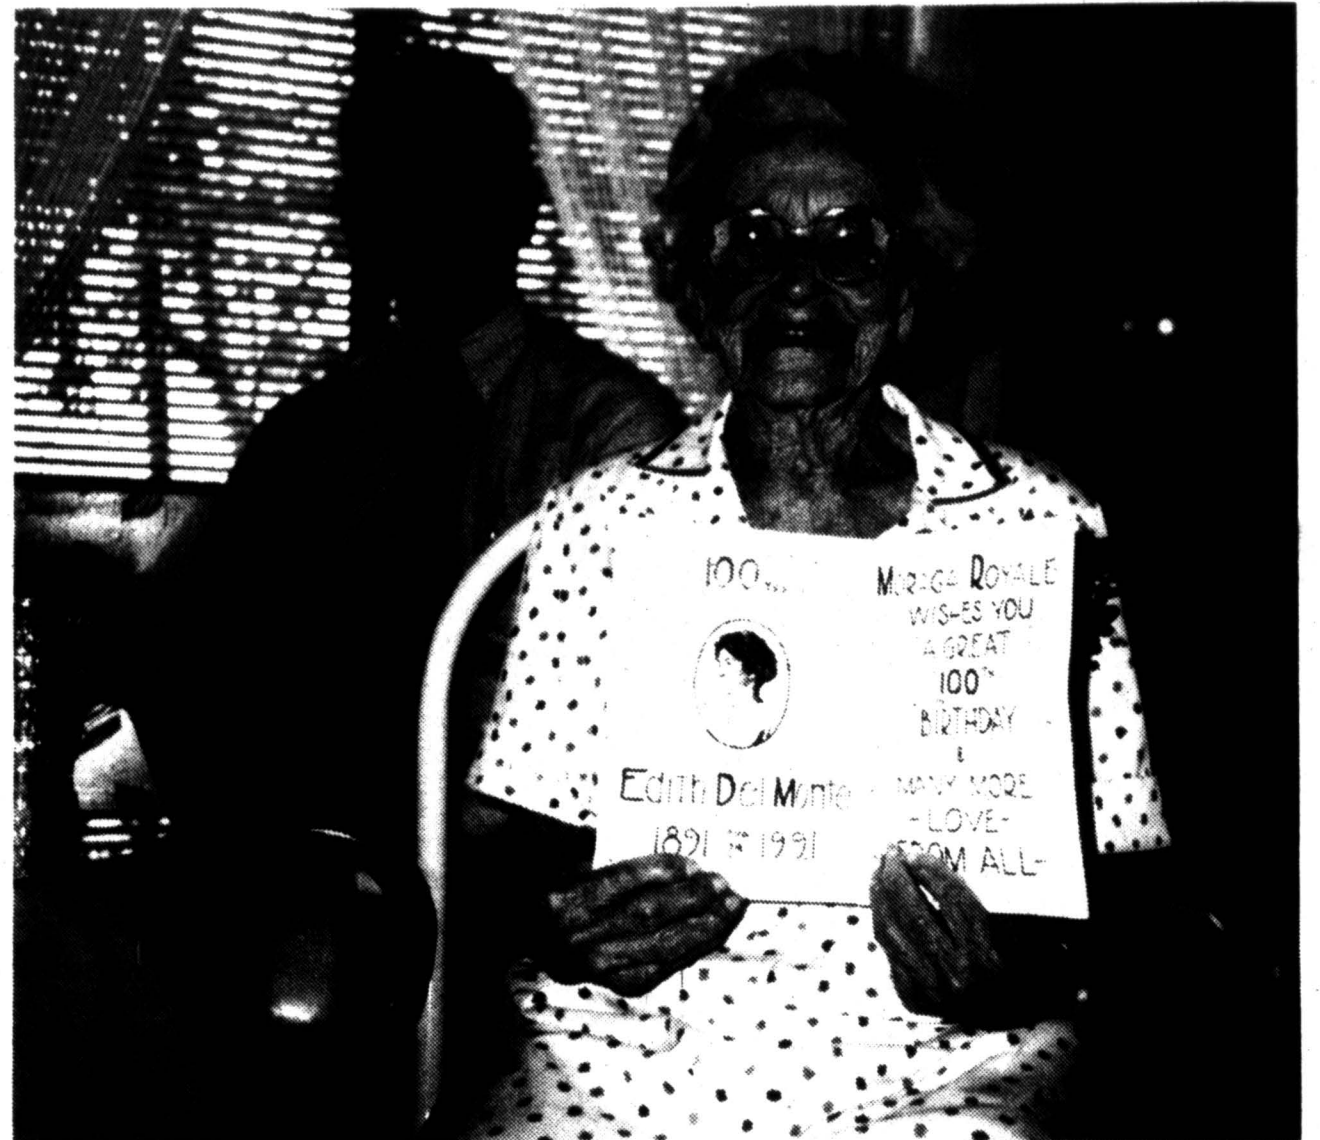 100
Edith Del Monte
1891 1991
MORAGA ROYALE
WISHES YOU
A GREAT
100TH
BIRTHDAY
&
MANY MORE
-LOVE-
FROM ALL-